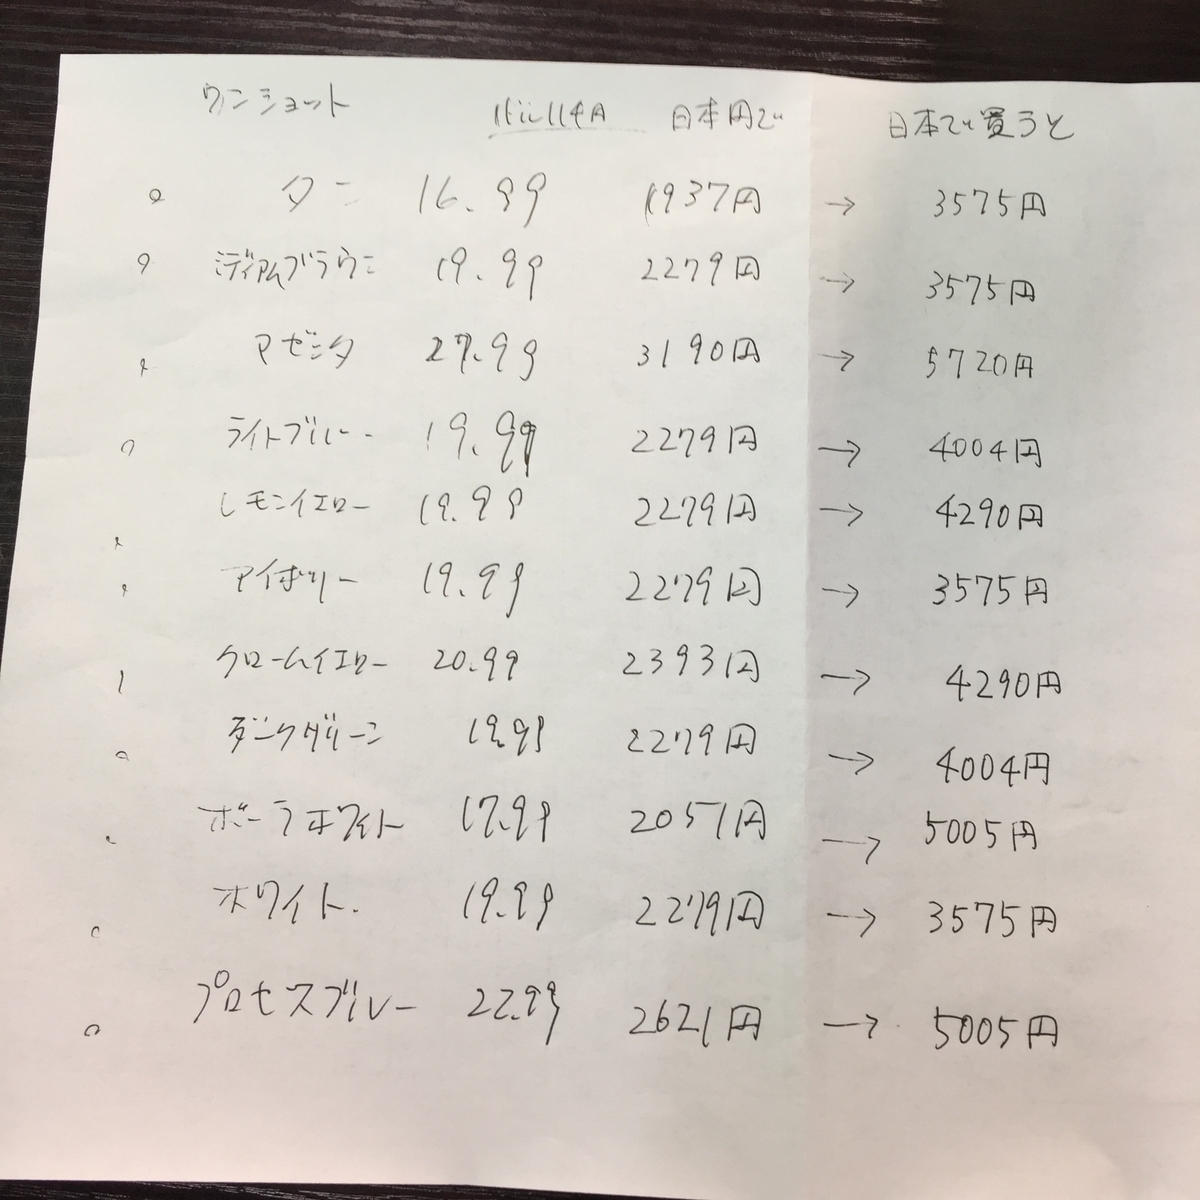 ワンショット 日本円で 日本で買うと
タン 16.99 1937円 → 3575円
ミディアムブラウン 19.99 2279円 → 3575円
マゼンタ 27.99 3190円 → 5720円
ライトブルー 19.99 2279円 → 4004円
レモンイエロー 19.99 2279円 → 4290円
アイボリー 19.99 2279円 → 3575円
クロームイエロー 20.99 2393円 → 4290円
ダークグリーン 19.99 2279円 → 4004円
ポーラホワイト 17.99 2051円 → 5005円
ホワイト. 19.99 2279円 → 3575円
プロセスブルー 22.99 2621円 → 5005円